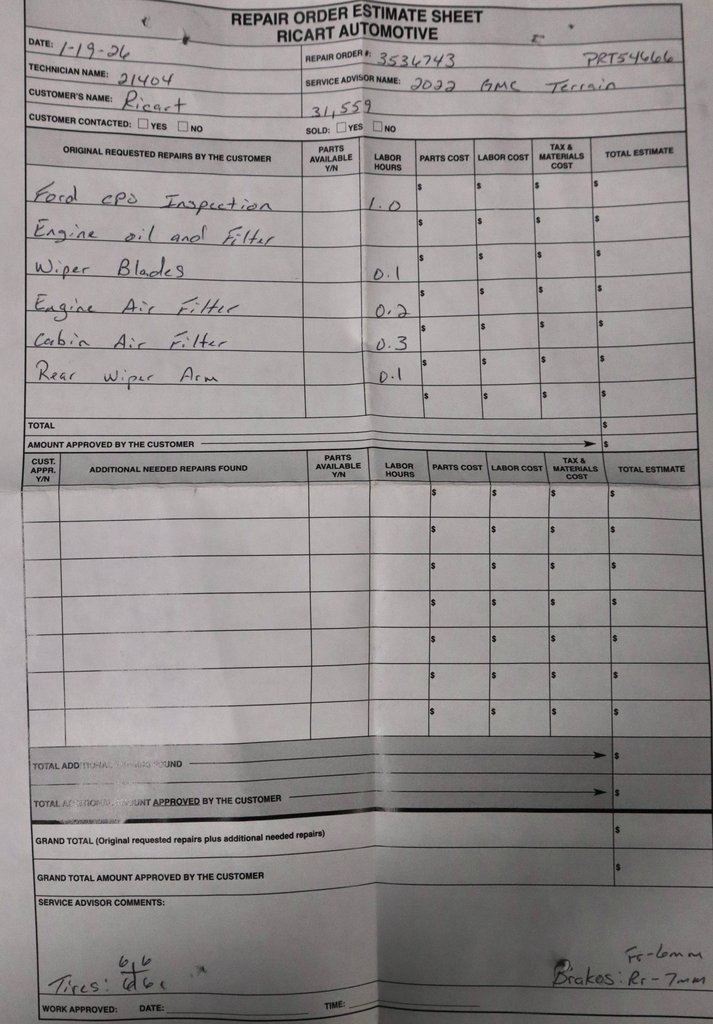 REPAIR ORDER ESTIMATE SHEET
RICART AUTOMOTIVE
DATE: 1-19-26
REPAIR ORDER #: 3534743 PRT54666
TECHNICIAN NAME: 21404
SERVICE ADVISOR NAME: 2022 GMC Terrain
CUSTOMER'S NAME: Ricart
31,559
CUSTOMER CONTACTED: YES NO
SOLD: YES NO
ORIGINAL REQUESTED REPAIRS BY THE CUSTOMER PARTS AVAILABLE Y/N LABOR HOURS PARTS COST LABOR COST TAX & MATERIALS COST TOTAL ESTIMATE
Ford CPO Inspection 1.0 $ $ $ $
Engine oil and Filter $ $ $ $
Wiper Blades 0.1 $ $ $ $
Engine Air Filter 0.2 $ $ $ $
Cabin Air Filter 0.3 $ $ $ $
Rear Wiper Arm 0.1 $ $ $ $
$ $ $ $
TOTAL $
AMOUNT APPROVED BY THE CUSTOMER $
CUST. APPR. Y/N ADDITIONAL NEEDED REPAIRS FOUND PARTS AVAILABLE Y/N LABOR HOURS PARTS COST LABOR COST TAX & MATERIALS COST TOTAL ESTIMATE
$ $ $ $
$ $ $ $
$ $ $ $
$ $ $ $
$ $ $ $
$ $ $ $
$ $ $ $
TOTAL ADDITIONAL FOUND $
TOTAL ADDITIONAL AMOUNT APPROVED BY THE CUSTOMER $
GRAND TOTAL (Original requested repairs plus additional needed repairs) $
GRAND TOTAL AMOUNT APPROVED BY THE CUSTOMER $
SERVICE ADVISOR COMMENTS:
6 6
Tires: 6 6
Fr-6mm
Brakes: Rr-7mm
WORK APPROVED: DATE: TIME: